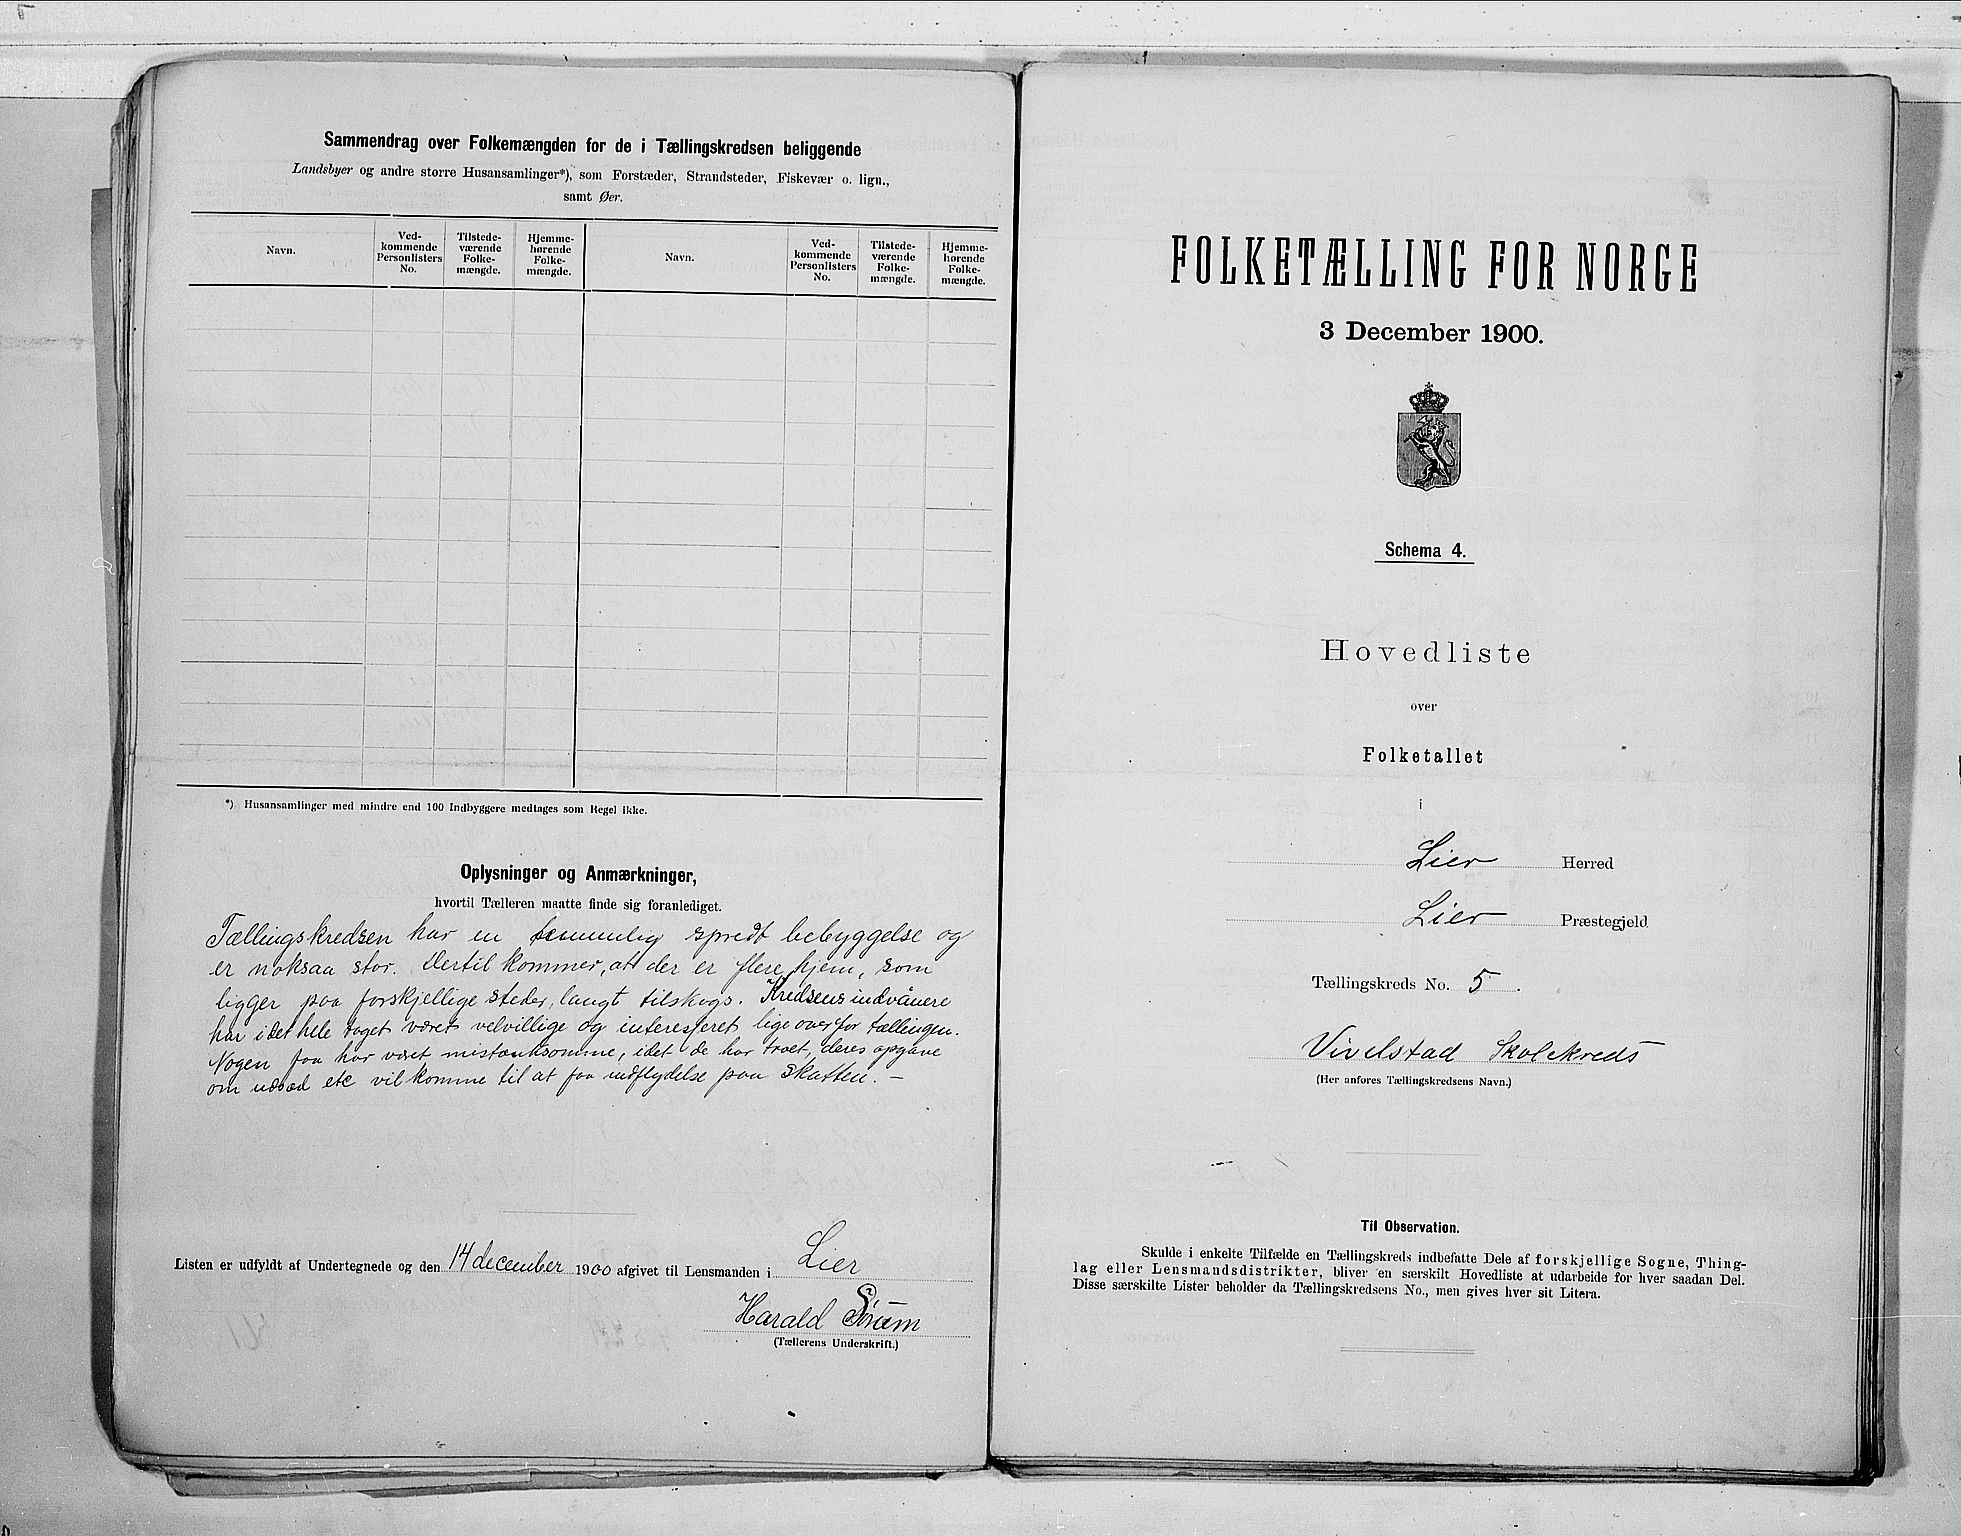 Sammendrag over Folkemængden for de i Tællingskredsen beliggende
Landsbyer og andre større Husansamlinger*), som Forstæder, Strandsteder, Fiskevær o. lign.,
samt Øer.
Navn.
Ved-
kommende
Personlisters
No.
Tilstede-
værende
Folke-
mængde.
Hjemme-
hørende
Folke-
mængde.
Navn.
Ved-
kommende
Personlisters
No.
Tilstede-
værende
Folke-
mængde.
Hjemme-
hørende
Folke-
mængde.
*) Husansamlinger med mindre end 100 Indbyggere medtages som Regel ikke.
Oplysninger og Anmærkninger,
hvortil Tælleren maatte finde sig foranlediget.
Tællingskredsen har en temmelig spredt bebyggelse og
er noksaa stor. Dertil kommer, at der er flere hjem, som
ligger paa forskjellige steder, langt tilskogs. Kredsens indvånere
har i det hele taget været velvillige og interesseret ligeoverfor tællingen.
Nogen faa har været mistænksomme, idet de har troet, deres opgave
om udsæd etc vil komme til at faa indflydelse paa skatten. –
Listen er udfyldt af Undertegnede og den 14 december 1900 afgivet til Lensmanden i Lier
Harald Sørum
(Tællerens Underskrift.)
FOLKETÆLLING FOR NORGE
3 December 1900.
Schema 4.
Hovedliste
over
Folketallet
i
Lier Herred
Lier Præstegjeld
Tællingskreds No. 5.
Vivelstad Skolekreds
(Her anføres Tællingskredsens Navn.)
Til Observation.
Skulde i enkelte Tilfælde en Tællingskreds indbefatte Dele af forskjellige Sogne, Thing-
lag eller Lensmandsdistrikter, bliver en særskilt Hovedliste at udarbeide for hver saadan Del.
Disse særskilte Lister beholder da Tællingskredsens No., men gives hver sit Litera.